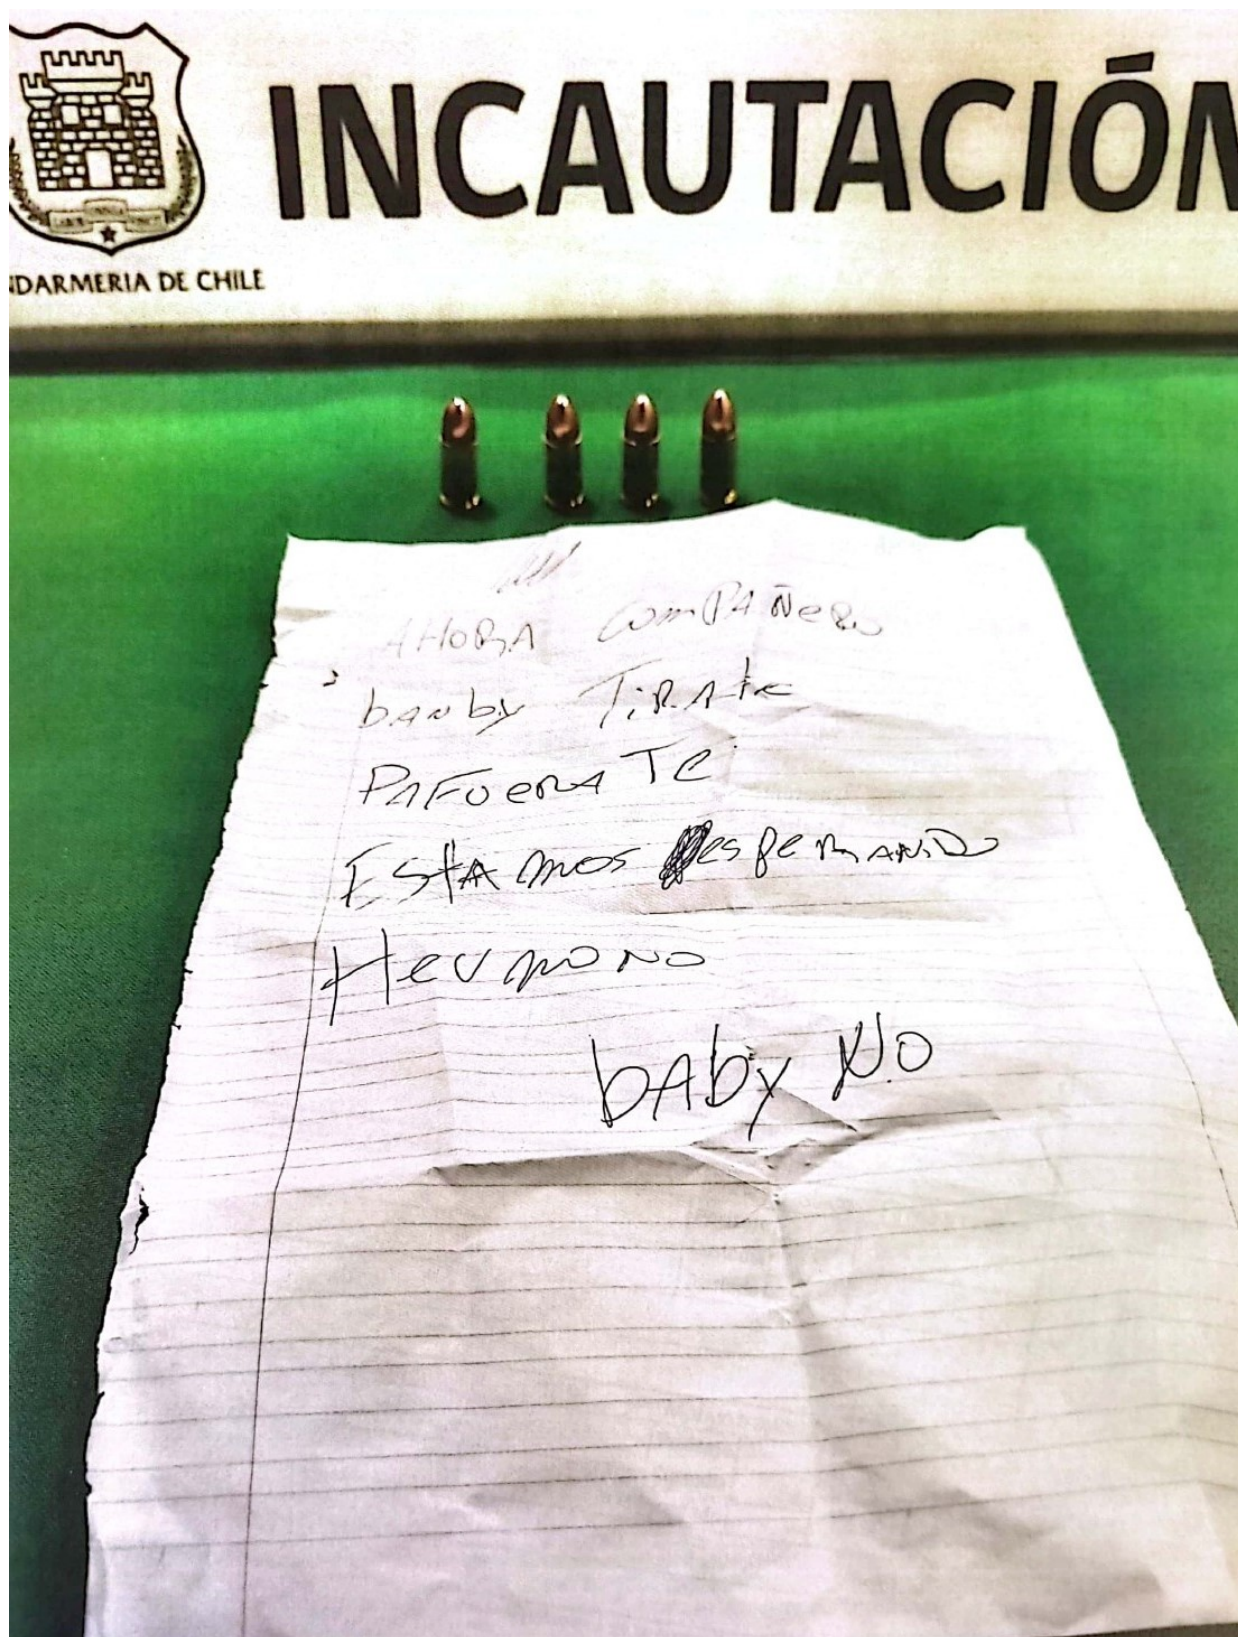 INCAUTACIÓN
NDARMERIA DE CHILE
AHORA COMPAÑERO
bANby TiRAte
PAFUERA TE
ESTAMOS esperANDO
HeVMONO
bAby NO